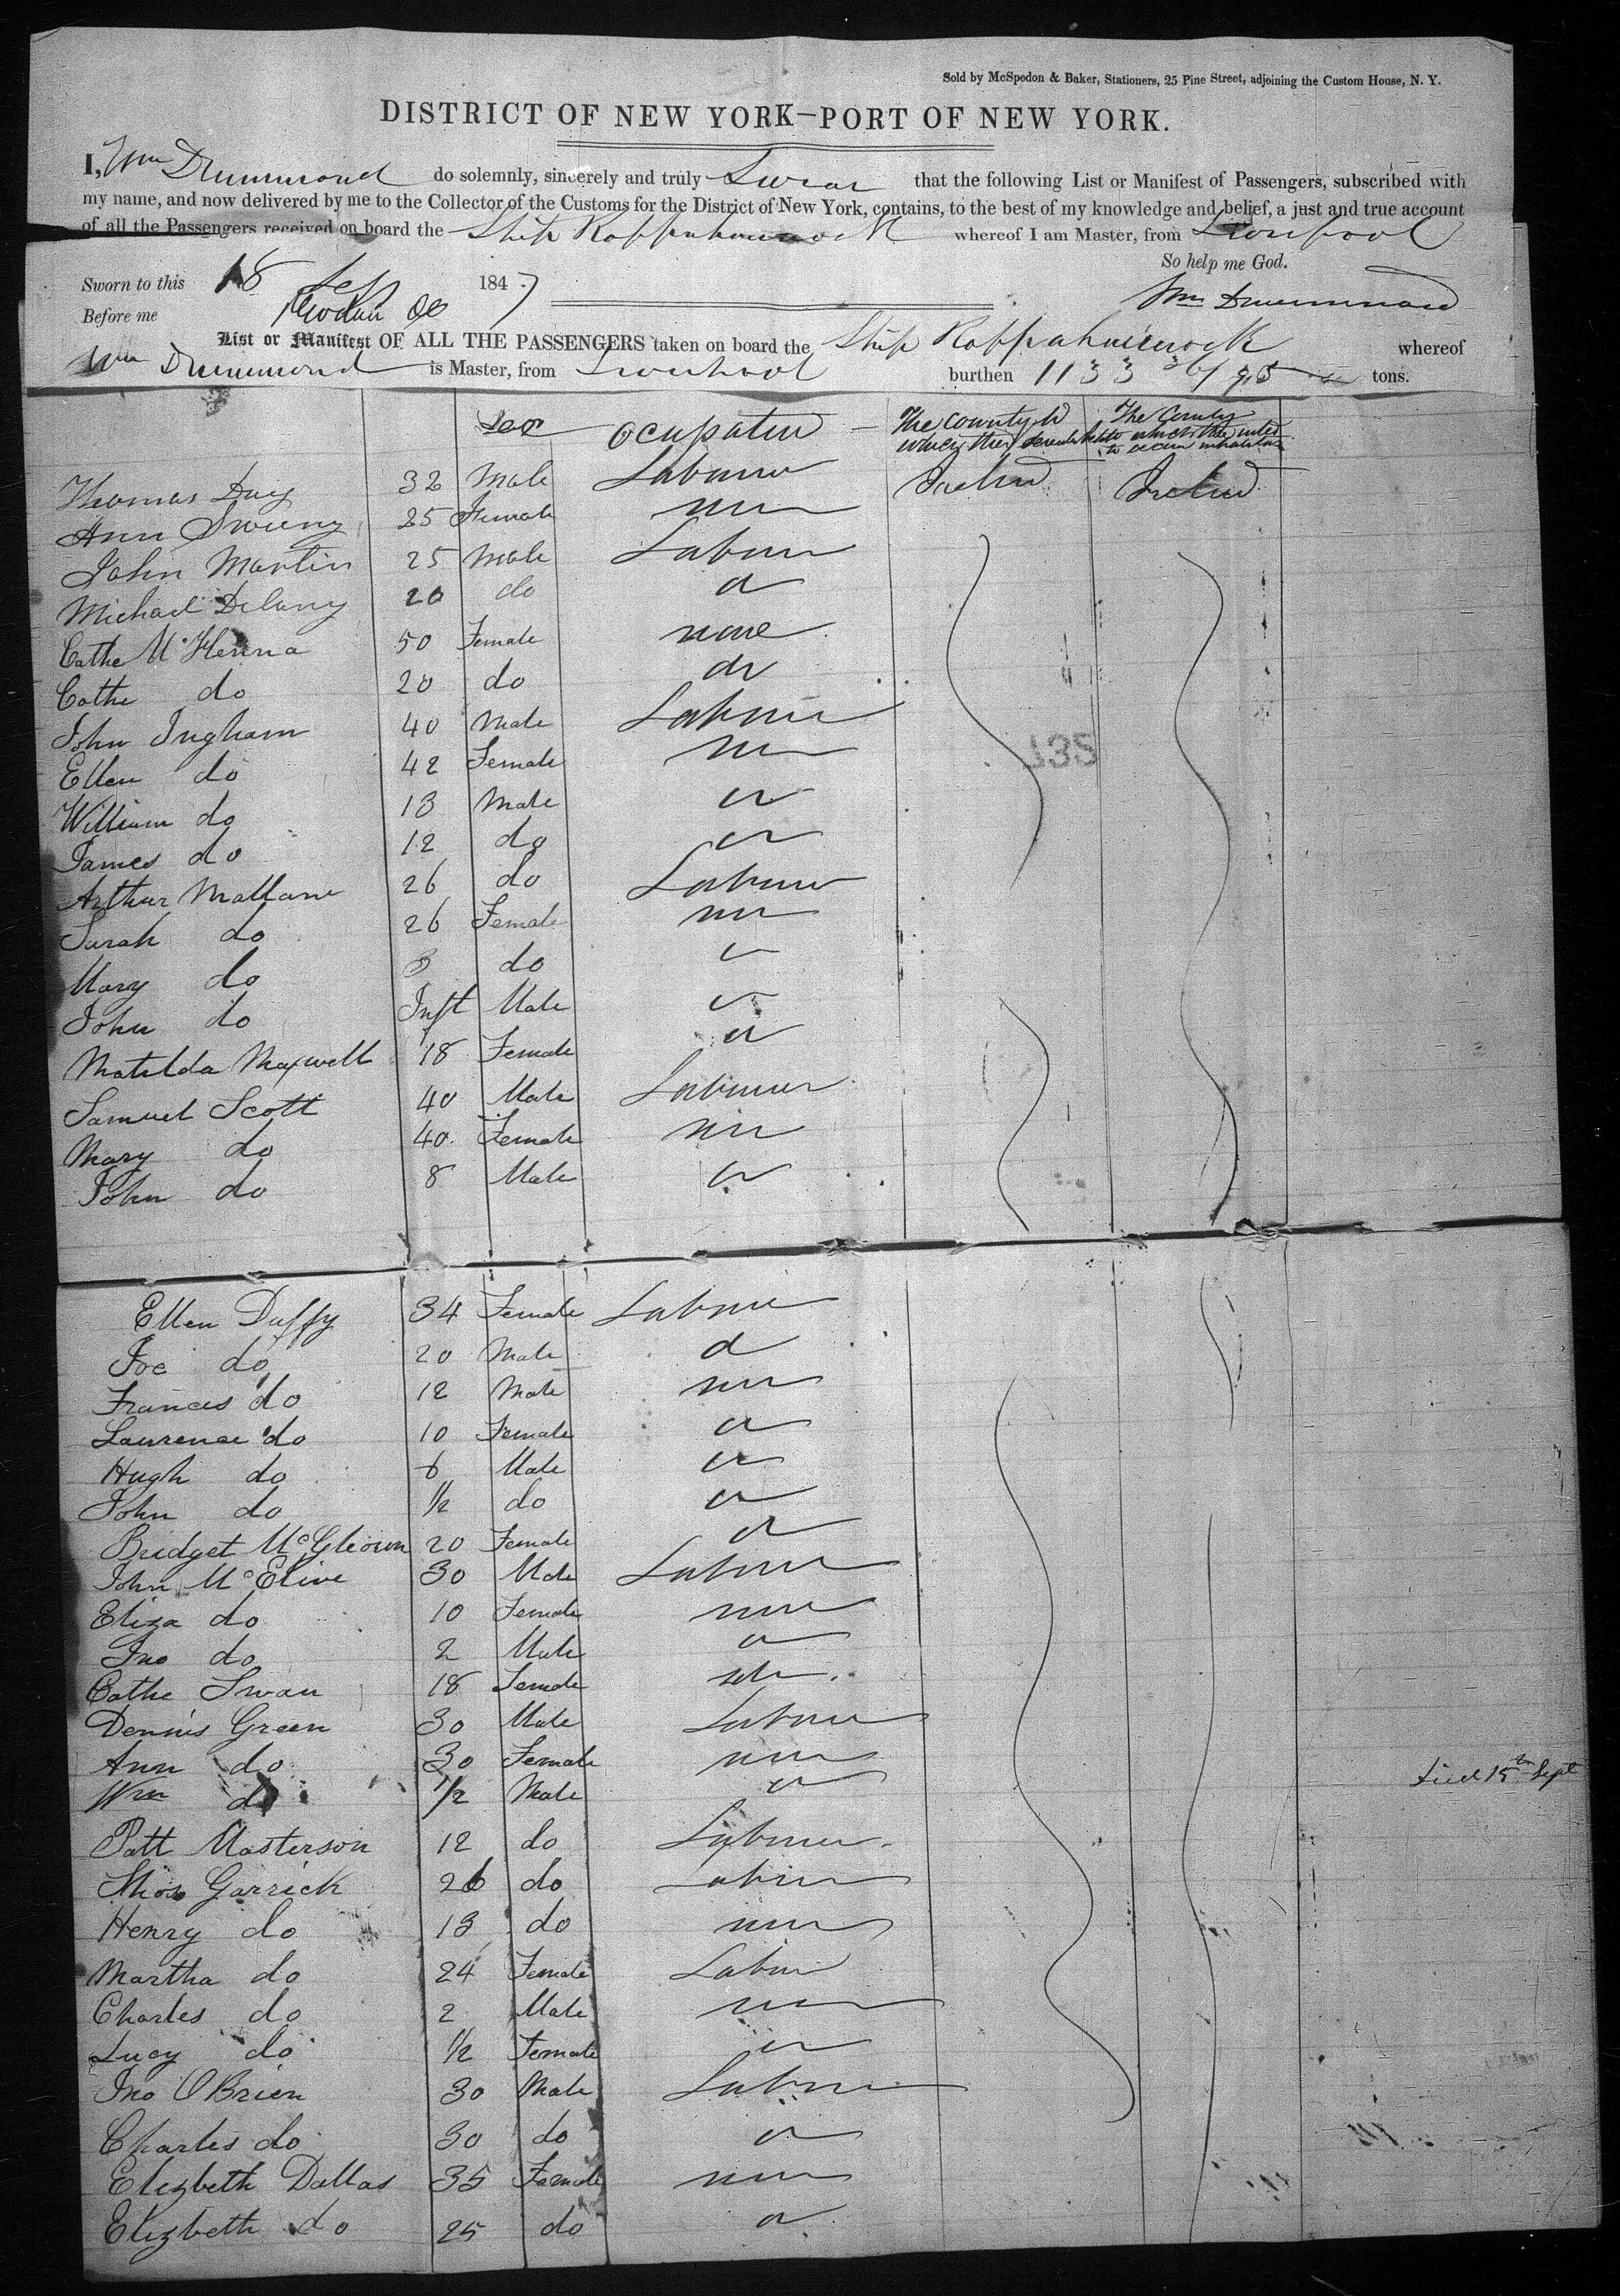 Sold by McSpedon & Baker, Stationers, 25 Pine Street, adjoining the Custom House, N. Y.
DISTRICT OF NEW YORK—PORT OF NEW YORK.
I, Wm Drummond do solemnly, sincerely and truly Swear that the following List or Manifest of Passengers, subscribed with
my name, and now delivered by me to the Collector of the Customs for the District of New York, contains, to the best of my knowledge and belief, a just and true account
of all the Passengers received on board the Ship Rappahannock whereof I am Master, from Liverpool
So help me God.
Sworn to this 18 Sep 1847
Before me
Wm Drummond
List or Manifest OF ALL THE PASSENGERS taken on board the Ship Rappahannock whereof
Wm Drummond is Master, from Liverpool burthen 1133 36/95 tons.
Sex Ocupation The County to which they The County to which they
Thomas Day 32 Male Labourer Ireland Ireland
Ann Sweeny 25 Female none
John Martin 25 Male Labourer
Michael Delany 20 do do
Cathe McKenna 50 Female none
Cathe do 20 do do
John Ingham 40 Male Labourer
Ellen do 42 Female none
William do 13 Male do
James do 12 do do
Arthur Mallane 26 do Labourer
Sarah do 26 Female none
Mary do 3 do do
John do Inft Male do
Matilda Maxwell 18 Female do
Samuel Scott 40 Male Labourer
Mary do 40 Female none
John do 8 Male do
Ellen Duffy 34 Female Labourer
Joe do 20 Male do
Frances do 12 Male none
Laurence do 10 Female do
Hugh do 6 Male do
John do 1/2 do do
Bridget McGleown 20 Female do
John McElive 30 Male Labourer
Eliza do 10 Female none
Jno do 2 Male do
Cathe Swan 18 Female
Dennis Green 30 Male Labourer
Ann do 30 Female none
Wm do 1/2 Male do died 15th Sept
Patt Masterson 12 do Labourer
Thos Garrick 26 do Labourer
Henry do 13 do none
Martha do 24 Female Labour
Charles do 2 Male none
Lucy do 1/2 Female do
Jno OBrien 30 Male Labourer
Charles do 30 do do
Elizbeth Dallas 35 Female none
Elizbeth do 25 do do